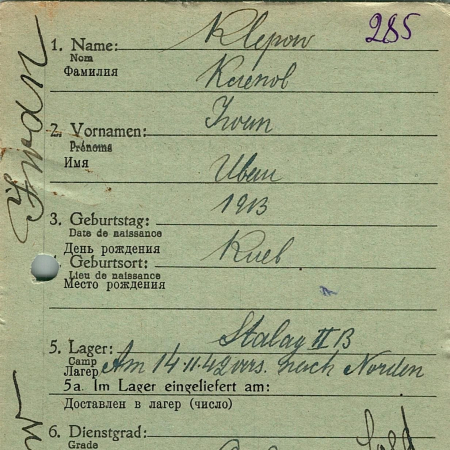 285
1. Name: Klepow
Nom
Фамилия
2. Vornamen: Iwan
Prénoms
Имя
Иван
1913
3. Geburtstag:
Date de naissance
День рождения
Киев
Geburtsort:
Lieu de naissance
Место рождения
Stalag II B
5. Lager: Am 14.11.42 vers. nach Norden
Camp
Лагерь
5a. Im Lager eingeliefert am:
Доставлен в лагерь (число)
6. Dienstgrad:
Grade
Iwan